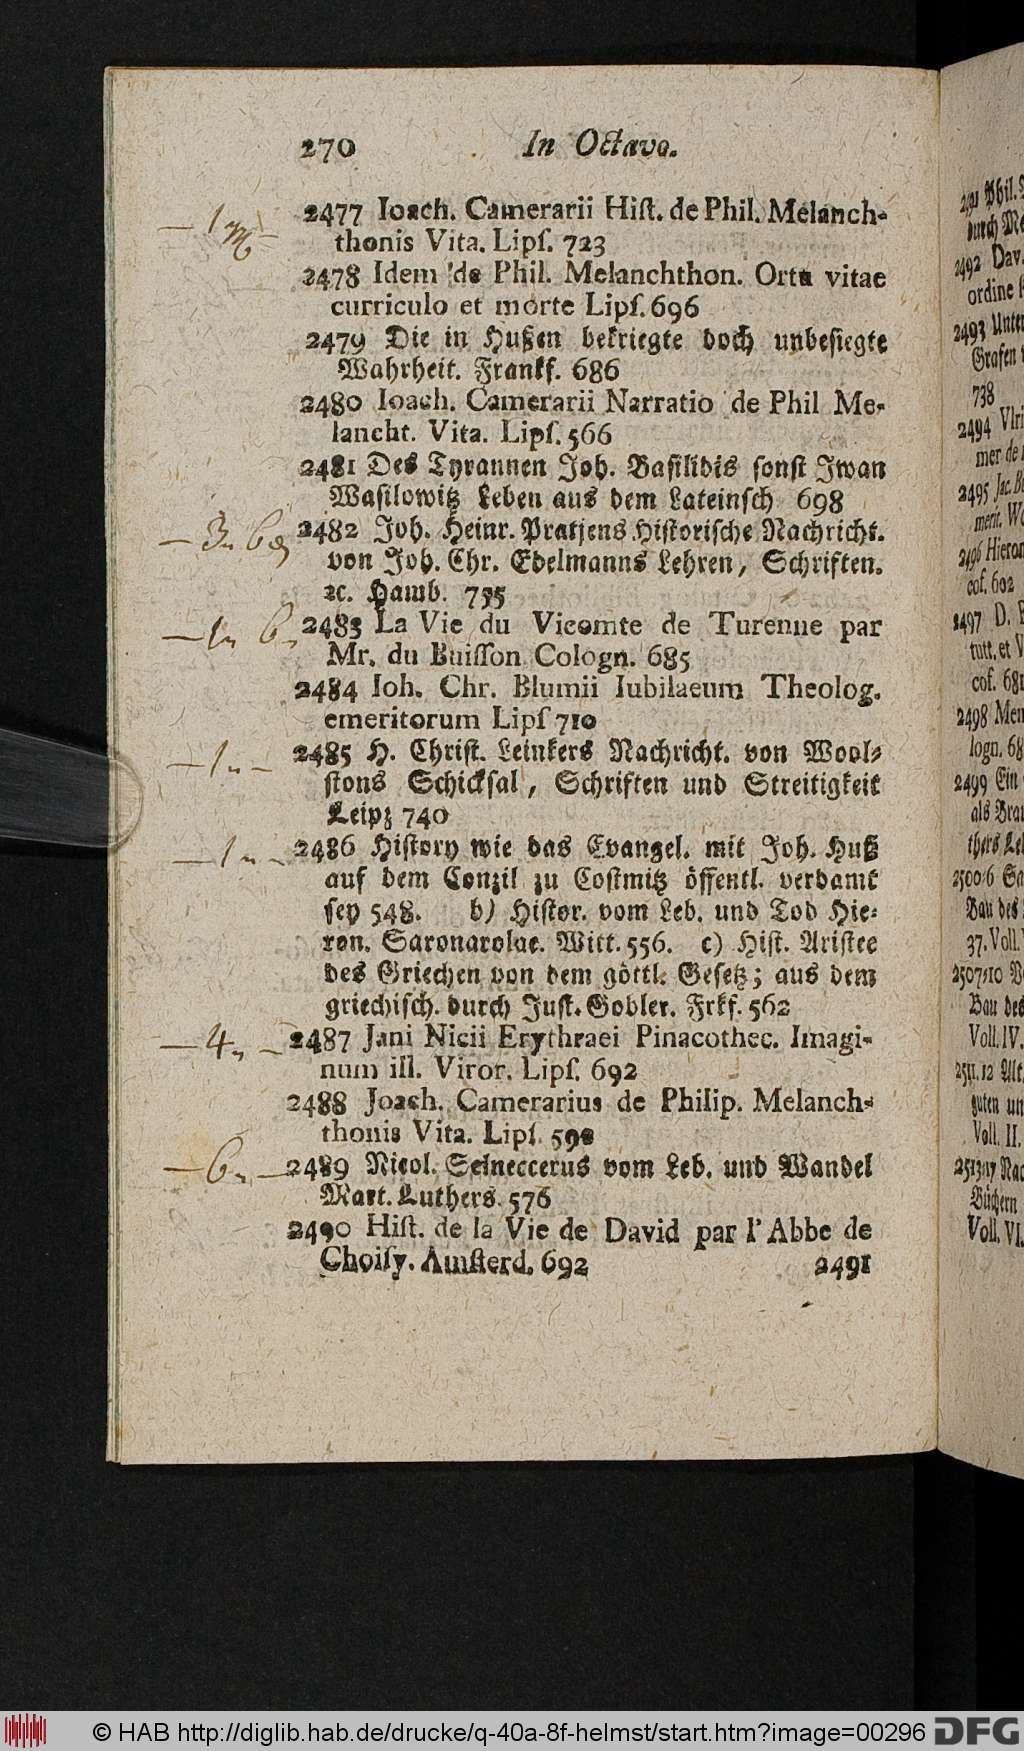 270 In Octavo.
2477 Ioach. Camerarii Hiſt. de Phil. Melanch-
thonis Vita. Lipſ. 723
2478 Idem de Phil. Melanchthon. Ortu vitae
curriculo et morte Lipſ. 696
2479 Die in Hußen bekriegte doch unbeſiegte
Wahrheit. Frankf. 686
2480 Ioach. Camerarii Narratio de Phil Me-
lancht. Vita. Lipſ. 566
2481 Des Tyrannen Joh. Baſilidis ſonſt Jwan
Waſilowitz Leben aus dem Lateinſch 698
2482 Joh. Heinr. Pratjens Hiſtoriſche Nachricht.
von Joh. Chr. Edelmanns Lehren, Schriften.
ꝛc. Hamb. 755
2483 La Vie du Vicomte de Turenne par
Mr. du Buiſſon Cologn. 685
2484 Ioh. Chr. Blumii Iubilaeum Theolog.
emeritorum Lipſ 710
2485 H. Chriſt. Leinkers Nachricht. von Wool-
ſtons Schickſal, Schriften und Streitigkeit
Leipz 740
2486 Hiſtory wie das Evangel. mit Joh. Huß
auf dem Conzil zu Coſtmitz öffentl. verdamt
ſey 548. b) Hiſtor. vom Leb. und Tod Hie-
ron. Saronarolae. Witt. 556. c) Hiſt. Ariſtee
des Griechen von dem göttl. Geſetz; aus dem
griechiſch. durch Juſt. Gobler. Frkf. 562
— 4. — 2487 Jani Nicii Erythraei Pinacothec. Imagi-
num ill. Viror. Lipſ. 692
2488 Joach. Camerarius de Philip. Melanch-
thonis Vita. Lipſ.
2489 Nicol. Selneccerus vom Leb. und Wandel
Mart. Luthers. 576
2490 Hiſt. de la Vie de David par l'Abbe de
Choiſy. Amſterd. 692 2491
2492 Dav.
ordine
2493 Unter
Grafen
738
2494 Vlri
mer de
2495 Jac.
merit.
2496 Hieron
cof. 602
2497 D.
tutt. et
cof. 681
2498 Mem
logn. 68
2499 Ein
als Bra
thers Le
Bau des
37. Voll.
Bau des
Voll. IV.
guten un
Voll. II.
Büchern
Voll. VI.
© HAB http://diglib.hab.de/drucke/q-40a-8f-helmst/start.htm?image=00296 DFG